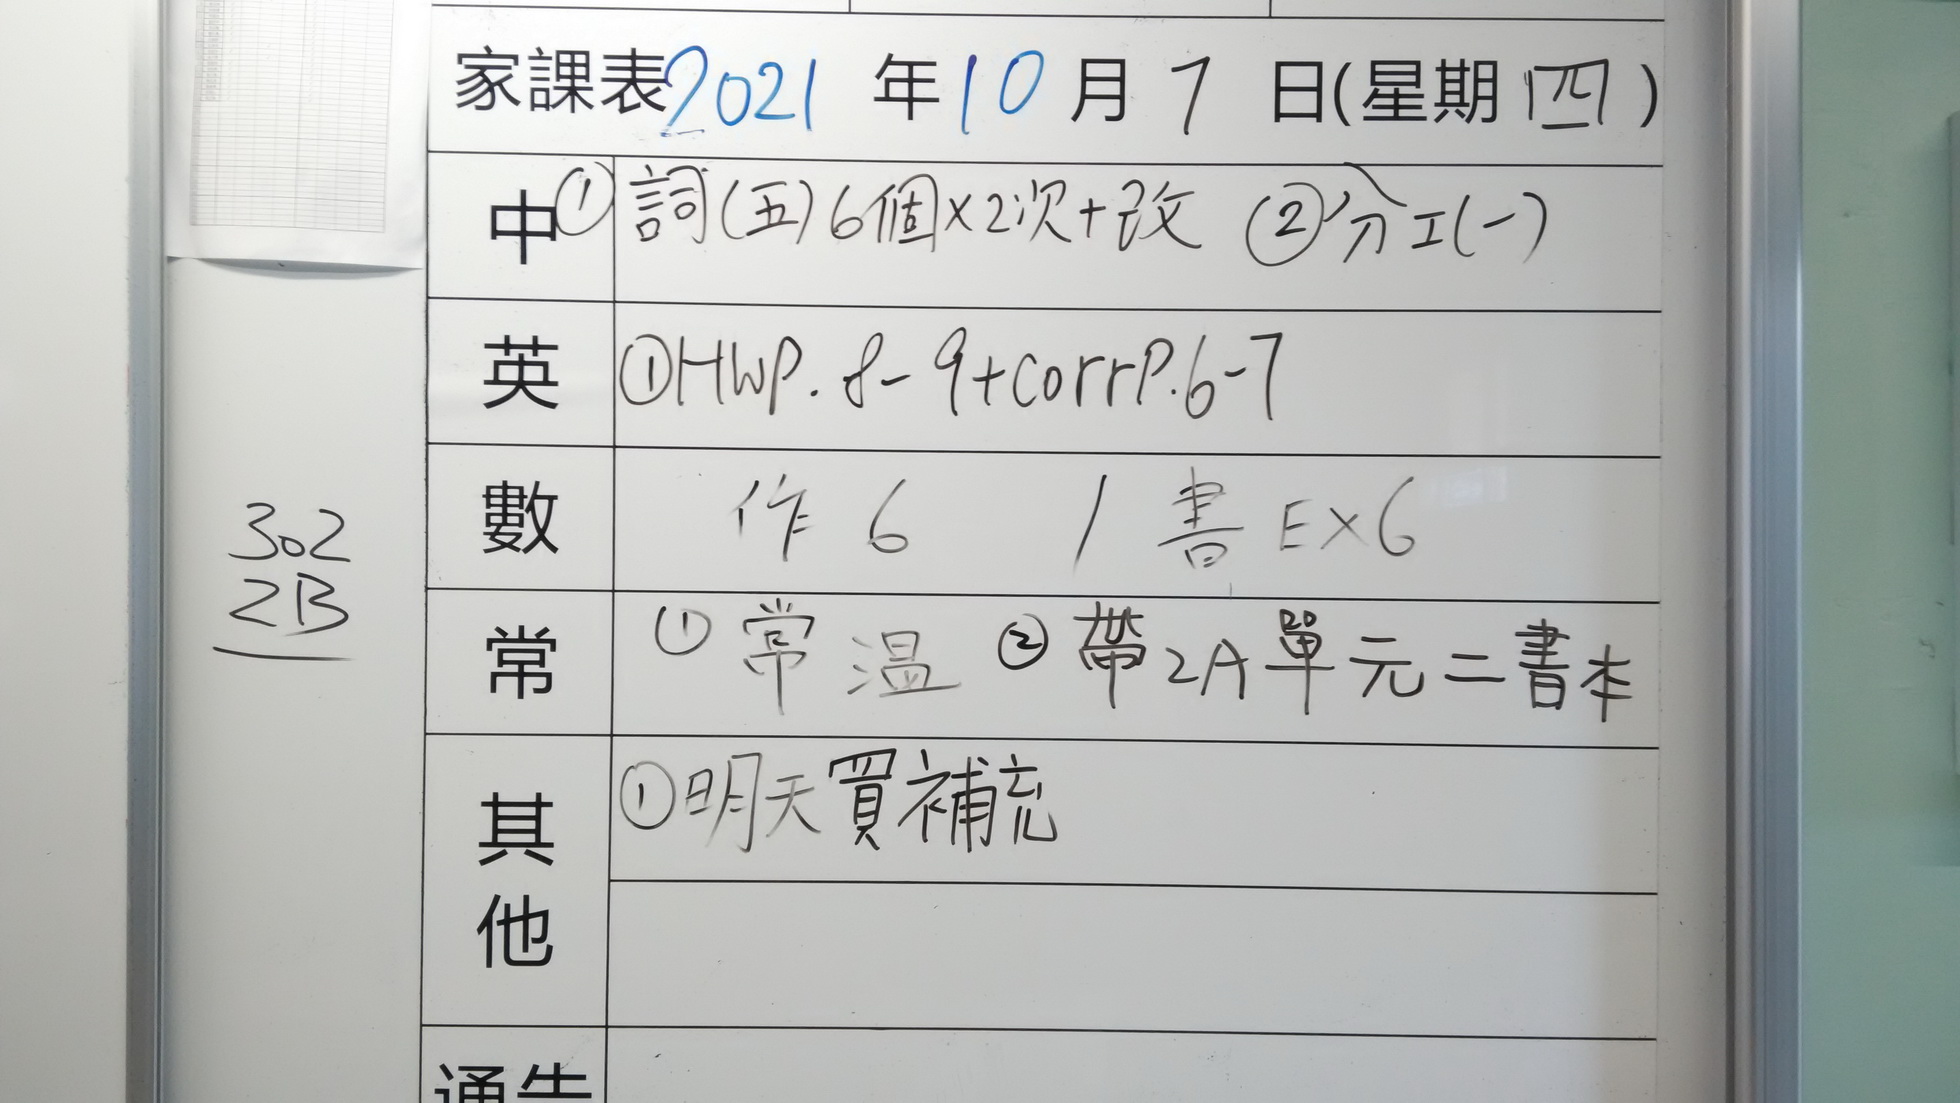 家課表2021年10月7日(星期四)
中 ①詞(五)6個×2次+改 ②分工(一)
英 ①HWP.8-9+corrP.6-7
數 作6 / 書EX6
302
2B
常 ①常温 ②帶2A單元二書本
其他 ①明天買補充
通告